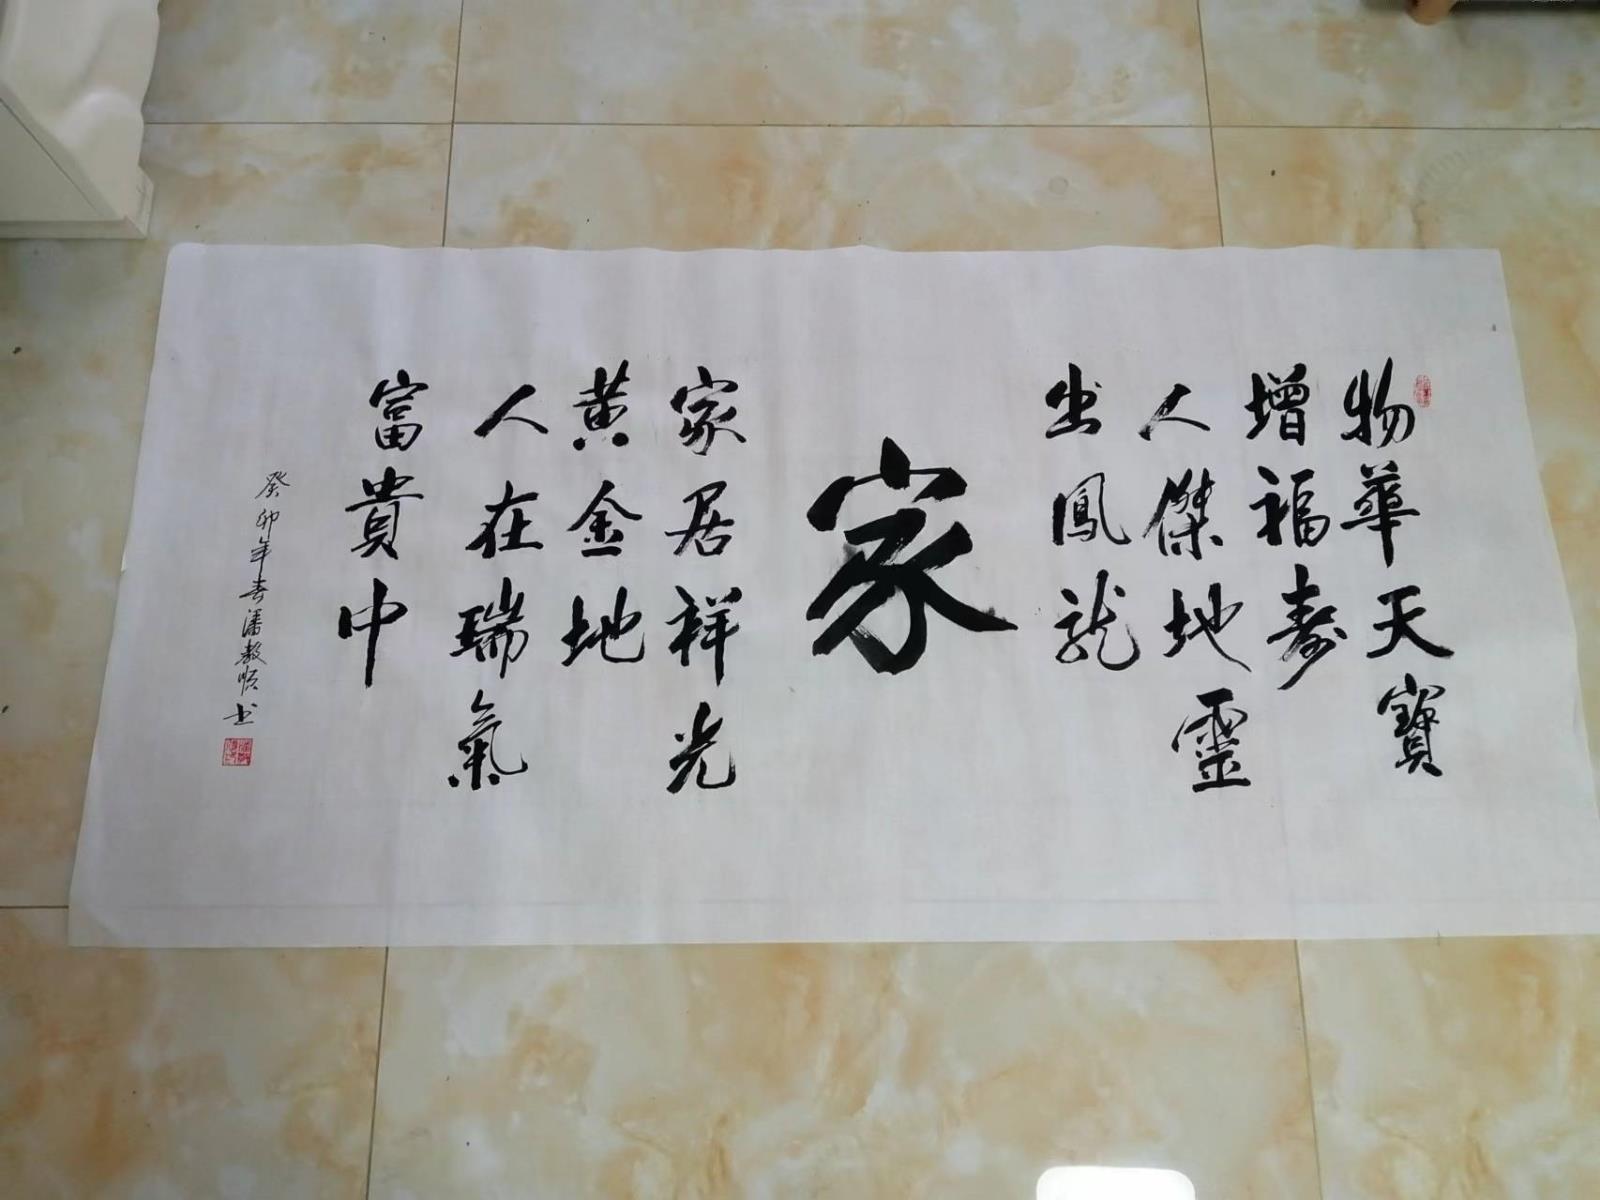 物華天寶
增福壽
人傑地靈
出鳳龙
家
家居祥光
黄金地
人在瑞氣
富貴中
癸卯年春潘教顺书